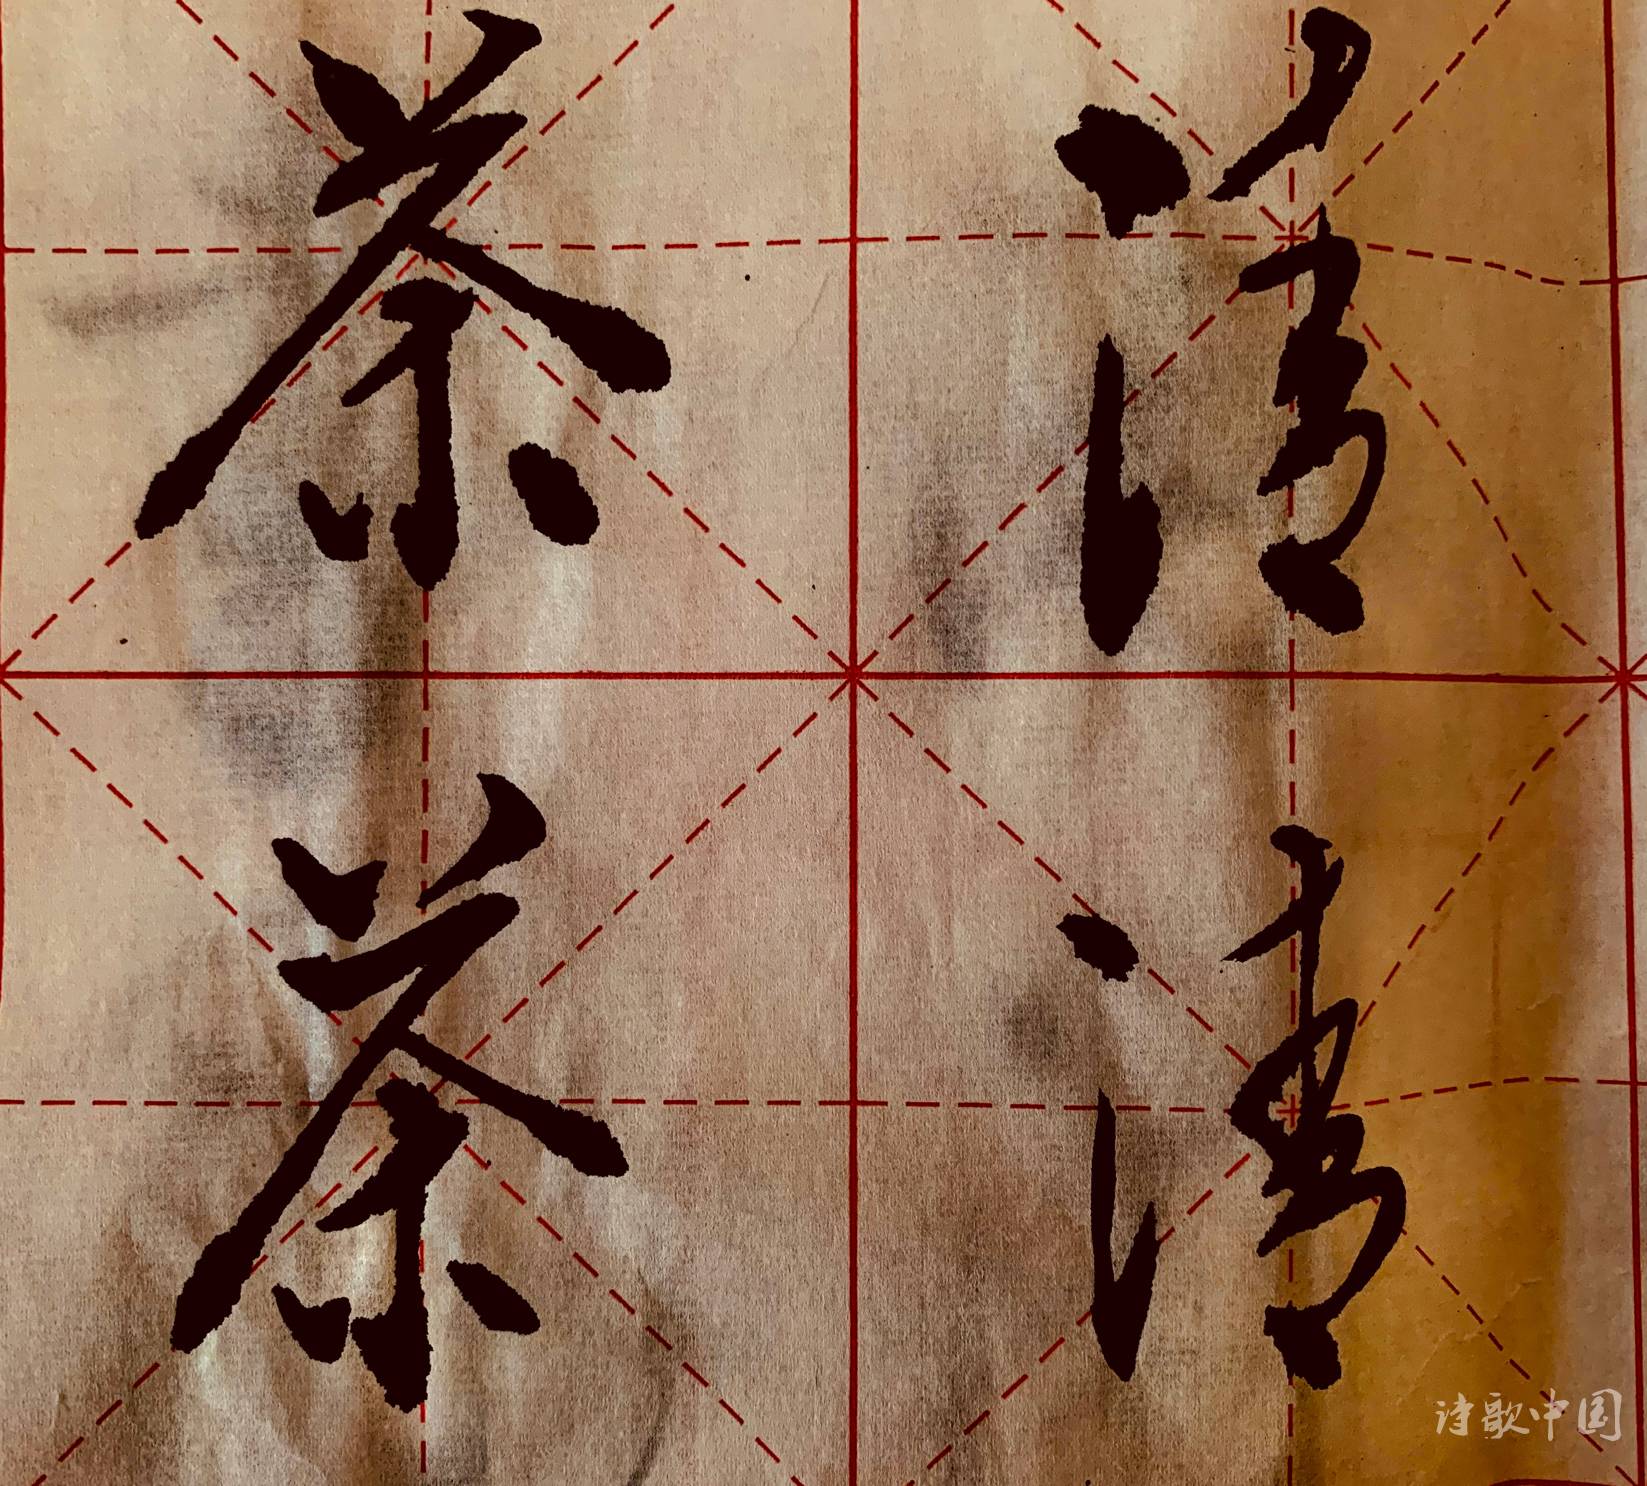 清茶
清茶
诗歌中国